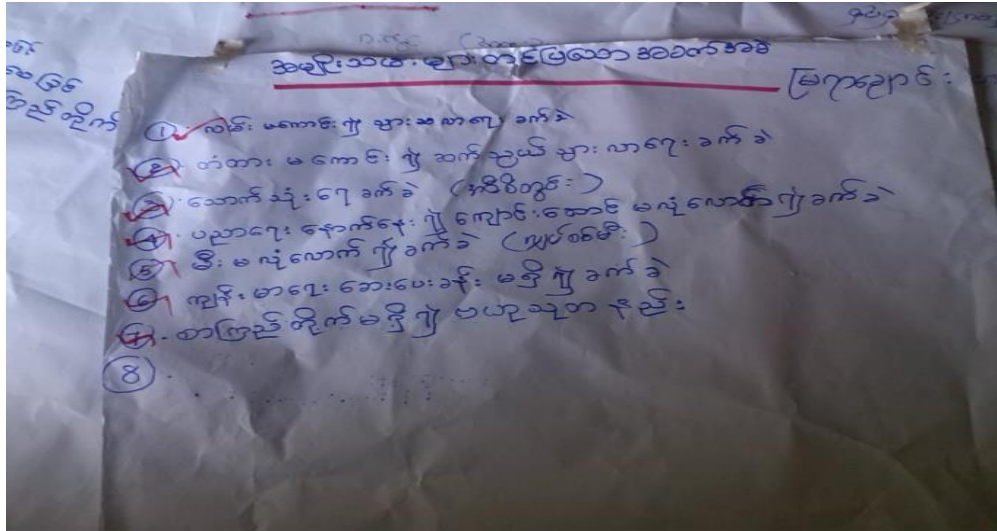 အမျိုးသမီးများတင်ပြသောအခက်အခဲ
မြကညောင်း
စာကြည့်တိုက်
၁. လမ်းမကောင်း၍ သွားလာရေးခက်ခဲ
၂. တံတားမကောင်း၍ ဆက်သွယ်သွားလာရေးခက်ခဲ
၃. သောက်သုံးရေခက်ခဲ (အဝီစိတွင်း)
၄. ပညာရေးနောက်နေး၍ ကျောင်းဆောင်မလုံလောက်၍ခက်ခဲ
၅. မီးမလုံလောက်၍ခက်ခဲ (လျှပ်စစ်မီး)
၆. ကျန်းမာရေးဆေးပေးခန်းမရှိ၍ ခက်ခဲ
၇. စာကြည်တိုက်မရှိ၍ ဗဟုသုတနည်း
8.